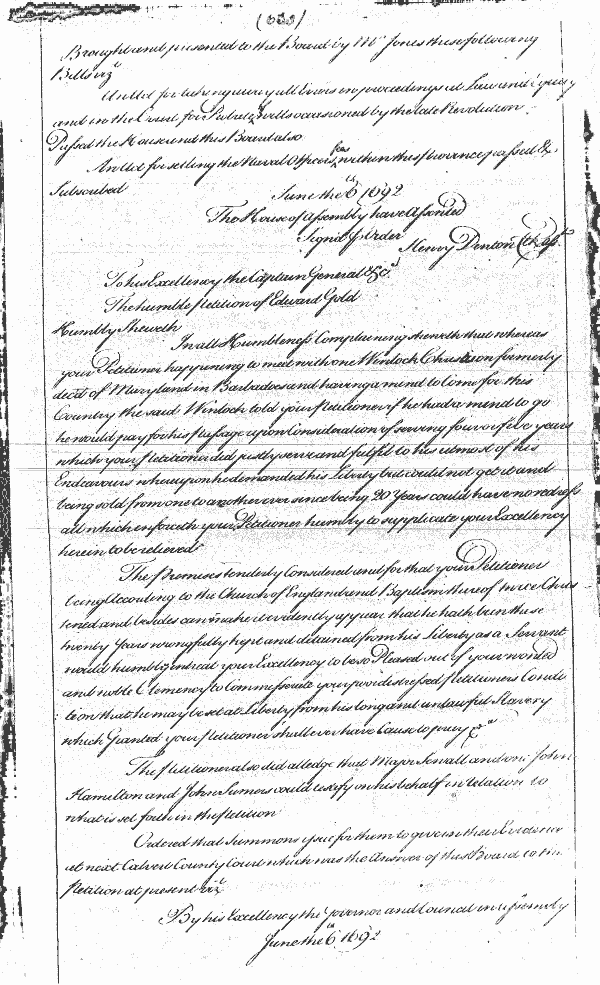 ( 333 )
Brought and presented to the Board by Mr Jones these following
Bills vizt
An Act for taking away all Errors in proceedings at Law and Equity
and in the Court for Probate of wills occasioned by the late Revolution
Passed the House and this Board also
An Act for settling the Naval Officers fees within this province passed &
Subscribed
June the 6th 1692
The House of Assembly have Assented
Signd p Order
Henry Denton Clk Asst
To his Excellency the Captain General &ca
The humble Petition of Edward Gold
Humbly Sheweth
In all Humbleness Complaining sheweth that whereas
your Petitioner happening to meet with one Winlock Christison formerly
decd of Maryland in Barbados and having a mind to Come for this
Country the said Winlock told your Petitioner if he had a mind to go
he would pay for his Passage upon Consideration of serving four or five years
which your Petitioner did justly serve and fulfil to his utmost of his
Endeavours whereupon he demanded his Liberty but could not get it and
being sold from one to another ever since being 20 Years could have no redress
all which enforceth your Petitioner humbly to supplicate your Excellency
herein to be relieved
The Premises tenderly Considered and for that your Petitioner
being According to the Church of England and Baptism thereof twice Chris
tened and besides can make it evidently appear that he hath been these
twenty Years wrongfully kept and detained from his Liberty as a Servant
would humbly entreat your Excellency to be so Pleased out of your wonted
and noble Clemency to Commiserate your poor distressed Petitioners Condi
tion that he may be set at Liberty from his long and unlawful Slavery
which Granted your Petitioner shall ever have Cause to pray &ca
The Petitioner also did alledge that Major Sewall and one John
Hamilton and John Sumers could testify on his behalf in relation to
what is set forth in the Petition
Ordered that Summons issue for them to give in their Evidence
at next Calvert County Court which was the Answer of this Board to the
Petition at present vizt
By his Excellency the Governor and Council in Assembly
June the 6th 1692